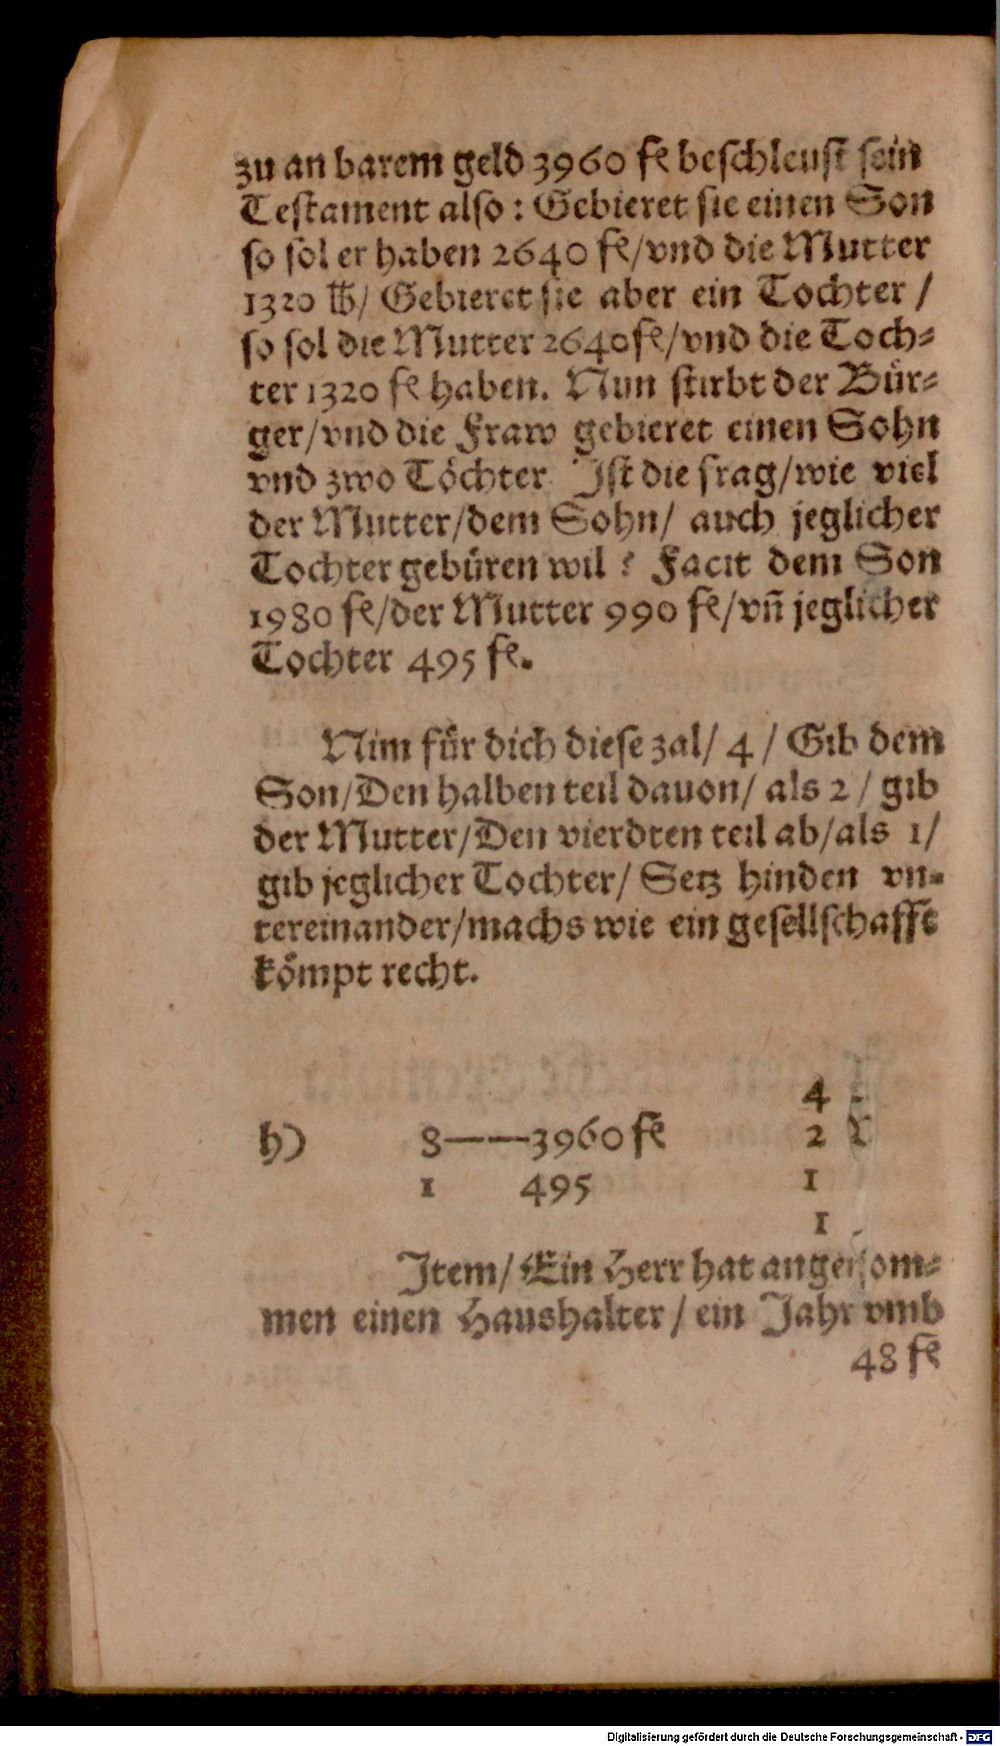 zu an barem geld 3960 fl beschleust sein
Testament also : Gebieret sie einen Son
so sol er haben 2640 fl/vnd die Mutter
1320 fl/ Gebieret sie aber ein Tochter /
so sol die Mutter 2640 fl/vnd die Toch-
ter 1320 fl haben. Nun stirbt der Bür-
ger/vnd die Fraw gebieret einen Sohn
vnd zwo Töchter Ist die frag/wie viel
der Mutter/dem Sohn/ auch jeglicher
Tochter gebüren wil ? Facit dem Son
1980 fl/der Mutter 990 fl/vñ jeglicher
Tochter 495 fl.
Nim für dich diese zal/ 4 / Gib dem
Son/Den halben teil dauon/ als 2 / gib
der Mutter/Den vierdten teil ab/als 1/
gib jeglicher Tochter/ Setz hinden vn-
tereinander/machs wie ein gesellschafft
kömpt recht.
4
h) 8——3960 fl 2
1 495 1
1
Item/ Ein Herr hat angenom-
men einen Haushalter / ein Jahr vmb
48 fl
Digitalisierung gefördert durch die Deutsche Forschungsgemeinschaft - DFG